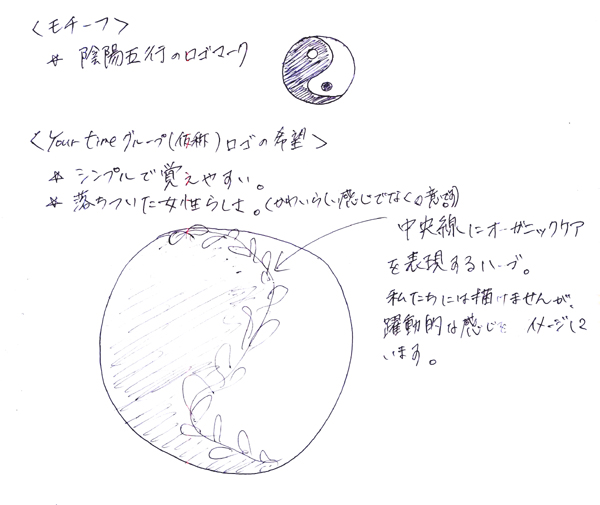 ＜モチーフ＞
* 陰陽五行のロゴマーク
＜Your timeグループ(仮称)ロゴの希望＞
* シンプルで覚えやすい。
* 落ちついた女性らしさ。(かわいらしい感じでなくの意です)
中央線にオーガニックケア
を表現するハーブ。
私たちには描けませんが、
躍動的な感じを イメージして
います。